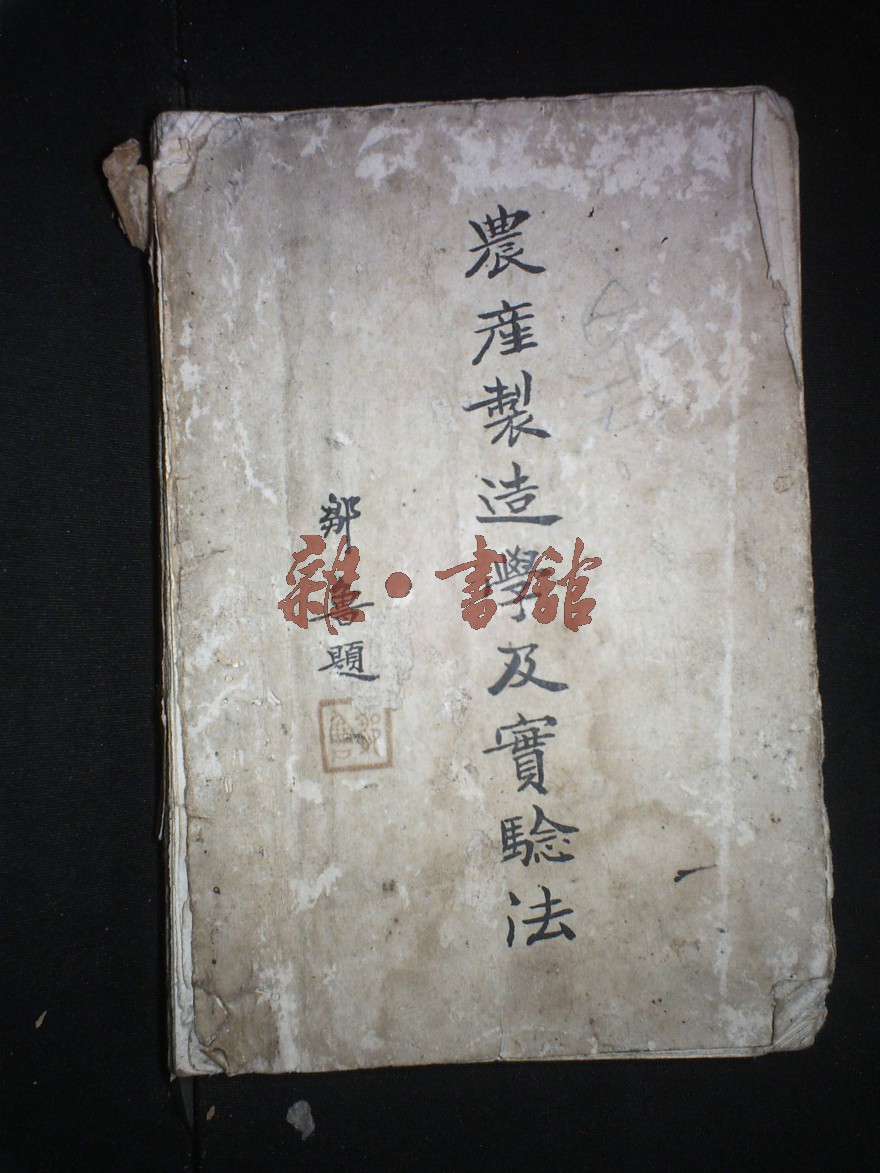 農產製造學及實驗法
鄒魯題
鄒魯
雜·書館